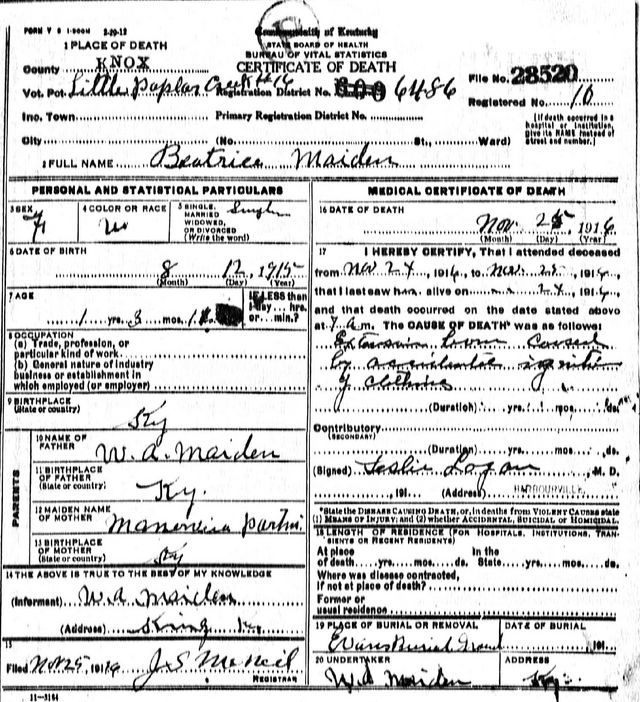 FORM V S 1-500M 2-29-12
Commonwealth of Kentucky
STATE BOARD OF HEALTH
BUREAU OF VITAL STATISTICS
CERTIFICATE OF DEATH
1 PLACE OF DEATH
County KNOX
File No. 28520
Vot. Pct. Little Poplar Creek #16 Registration District No. 6486
Registered No. 10
Inc. Town Primary Registration District No.
(If death occurred in a hospital or institution, give its NAME instead of street and number.)
City (No. St., Ward)
2 FULL NAME Beatrice Maiden
PERSONAL AND STATISTICAL PARTICULARS
3 SEX F
4 COLOR OR RACE W
5 SINGLE, MARRIED WIDOWED, OR DIVORCED (Write the word) Single
6 DATE OF BIRTH
8 12, 1915
(Month) (Day) (Year)
7 AGE
1 yrs. 3 mos.
If LESS than 1 day... hrs. or... min.?
8 OCCUPATION
(a) Trade, profession, or
particular kind of work
(b) General nature of industry
business or establishment in
which employed (or employer)
9 BIRTHPLACE
(State or country) Ky
PARENTS
10 NAME OF FATHER W. A. Maiden
11 BIRTHPLACE OF FATHER (State or country) Ky.
12 MAIDEN NAME OF MOTHER
13 BIRTHPLACE OF MOTHER (State or country) Ky
14 THE ABOVE IS TRUE TO THE BEST OF MY KNOWLEDGE
(Informant) W. A. Maiden
(Address) Ky
15
Filed Nov 25 1916 J. S. McNeil
REGISTRAR
11-3184
MEDICAL CERTIFICATE OF DEATH
16 DATE OF DEATH
Nov. 25, 1916
(Month) (Day) (Year)
17 I HEREBY CERTIFY, That I attended deceased
from Nov 24, 1916, to Nov. 25, 1916,
that I last saw h alive on 24, 1916,
and that death occurred on the date stated above
at 7 a.m. The CAUSE OF DEATH was as follows:
Extensive burn caused
by accidental
of clothing
(Duration) yrs. mos. ds.
Contributory
(SECONDARY)
(Duration) yrs. mos. ds.
(Signed) Leslie Logan, M. D.
, 191 (Address) BARBOURVILLE,
*State the DISEASE CAUSING DEATH, or, in deaths from VIOLENT CAUSES state
(1) MEANS OF INJURY; and (2) whether ACCIDENTAL, SUICIDAL or HOMICIDAL.
18 LENGTH OF RESIDENCE (FOR HOSPITALS, INSTITUTIONS, TRANSIENTS OR RECENT RESIDENTS)
At place In the
of death yrs. mos. ds. State yrs. mos. ds.
Where was disease contracted,
If not at place of death?
Former or
usual residence
19 PLACE OF BURIAL OR REMOVAL Evans Burial Ground
DATE OF BURIAL 191
20 UNDERTAKER W. A. Maiden
ADDRESS Ky.